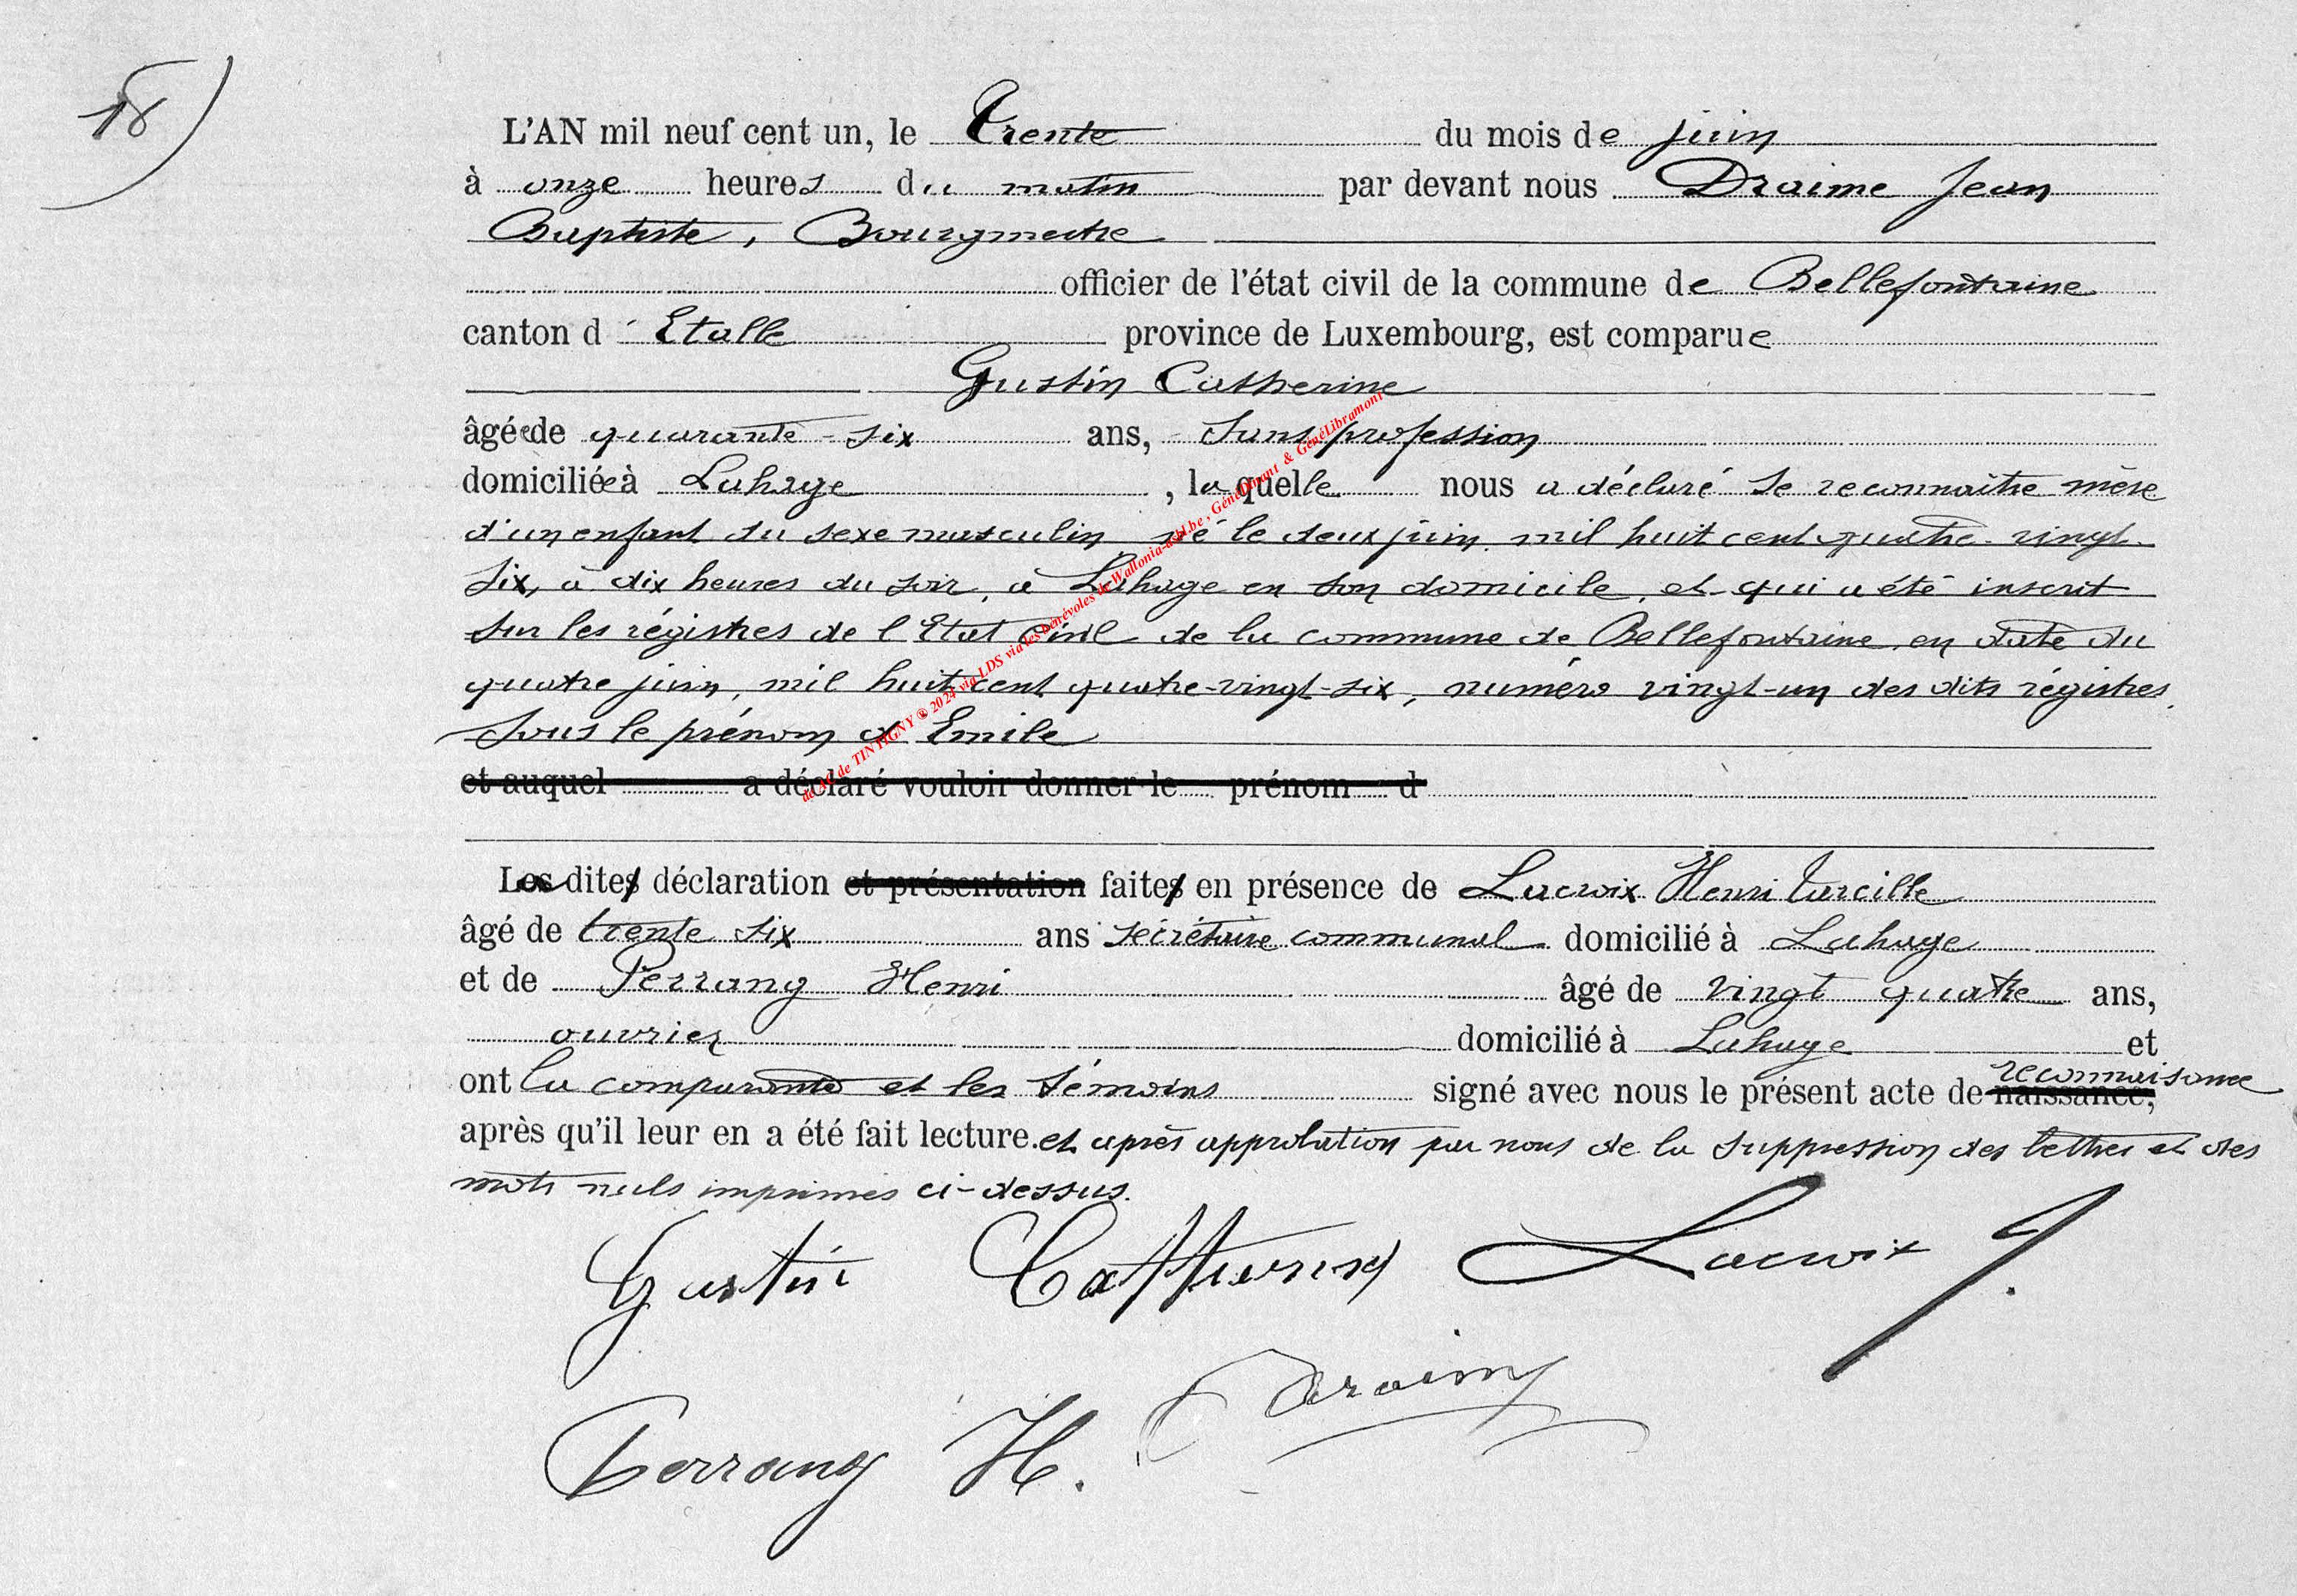 18)
L'AN mil neuf cent un, le Trente du mois de juin
à onze heures du matin par devant nous Draime Jean
Baptiste, Bourgmestre
officier de l'état civil de la commune de Bellefontaine
canton d'Etalle province de Luxembourg, est comparue
Gustin Catherine
âgée de quarante-six ans, Sans profession
domiciliée à Lahage, laquelle nous a déclaré se reconnaître mère
d'un enfant du sexe masculin né le deux juin mil huit cent quatre-vingt-
six, à dix heures du soir, à Lahage en son domicile, et qui a été inscrit
sur les régistres de l'Etat Civil de la commune de Bellefontaine, en date du
quatre juin, mil huit cent quatre-vingt-six, numéro vingt-un des dits régistres,
sous le prénom d'Emile
et auquel a déclaré vouloir donner le prénom d
La dite déclaration et présentation faite en présence de Lacroix Henri
âgé de trente six ans sécrétaire communal domicilié à Lahage
et de Perrang Henri âgé de vingt quatre ans,
ouvrier domicilié à Lahage et
reconnaisance
ont la comparante et les témoins signé avec nous le présent acte de naissance,
après qu'il leur en a été fait lecture. et après approbation par nous de la suppression des lettres et des
mots nuls imprimés ci-dessus.
Gustin Catherine Lacroix
Draime
Perrang H.
de AC de TINTIGNY © 2024 via LDS via les bénévoles de Wallonia-asbl.be, GénéDinant & GénéLibramont